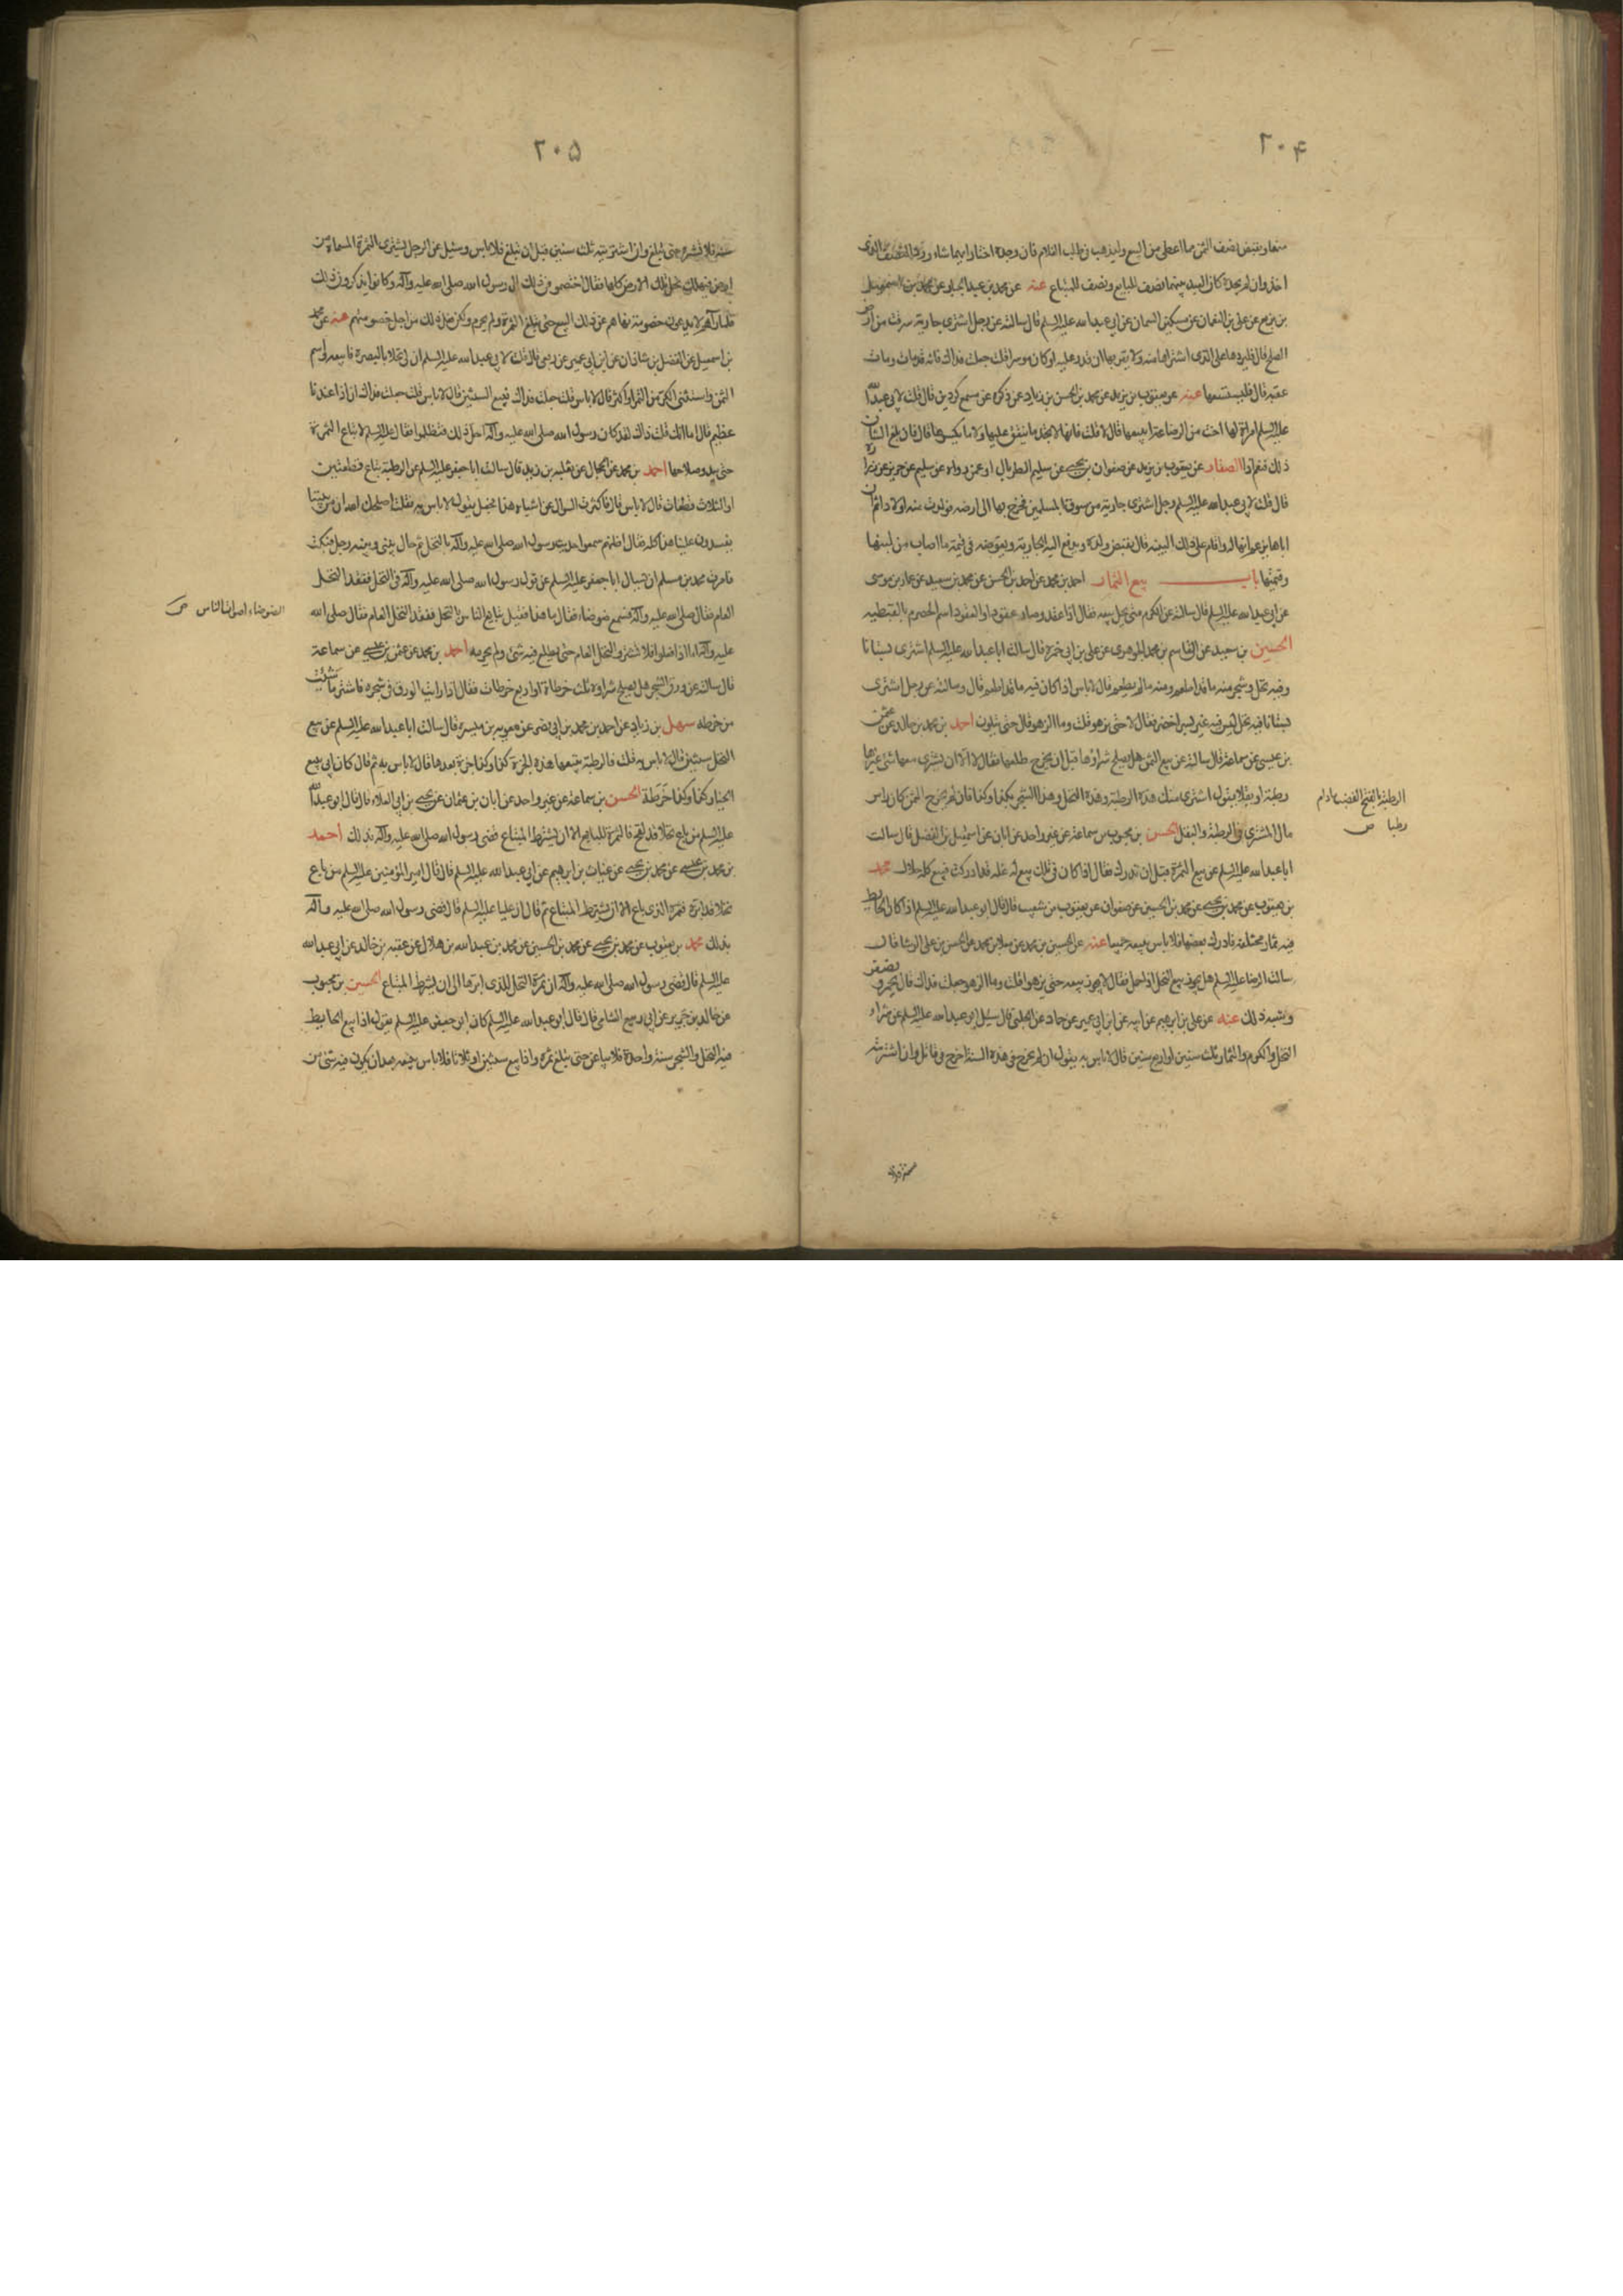 ٢٠۴
منهما ويقبض نصف الثمن مما اعطى من البيع وليذهب في طلب الغلام فان وجده اختار ايهما شاء ورد النصف الذي
اخذ وان لم يجده كان العبد بينهما نصف للبايع ونصف للمبتاع عنه عن محمد بن عبد الجبار عن محمد بن اسمعيل
بن بزيع عن علي بن النعمان عن مسكين السمان عن ابي عبد الله عليه السلم قال سالته عن رجل اشترى جارية سرقت من ارض
الصلح قال فليردها على الذي اشتراها منه ولا يقربها ان قدر عليه او كان موسرا قلت جعلت فداك فانه قد مات ومات
عقبه قال فليستسعها عنه عن يعقوب بن يزيد عن محمد بن الحسن بن زياد عن ذكره عن مسمع كردين قال قلت لابي عبد الله
عليه السلم امراة لها اخت من الرضاعة ابيعها قال لا قلت فانها لا تجد ما ينفق عليها ولا ما يكسوها قال فان بلغ الشان
ذلك فنعم اذا الصفار عن يعقوب بن يزيد عن صفوان بن يحيى عن سليم الطربال او عن رواه عن سليم عن حريز عن زرارة
قال قلت لابي عبد الله عليه السلم رجل اشترى جارية من سوق المسلمين فخرج بها الى ارضه فولدت منه اولادا ثم ان
اباها يزعم انها له واقام على ذلك البينة قال يقبض ولده ويدفع اليه الجارية ويعوضه في قيمة ما اصاب من لبنها
وخدمتها باب بيع الثمار احمد بن محمد عن احمد بن الحسن عن محمد بن سعيد عن عمار بن موسى
عن ابي عبد الله عليه السلم قال سالته عن الكرم متى يحل بيعه فقال اذا عقد وصار عقودا والعقود اسم الحصرم بالنبطية
الحسين بن سعيد عن القاسم بن محمد الجوهري عن علي بن ابي حمزة قال سالت ابا عبد الله عليه السلم اشترى بستانا
وفيه نخل وشجر منه ما قد اطعم ومنه ما لم يطعم قال لا باس اذا كان فيه ما قد اطعم قال وسالته عن رجل اشترى
بستانا فيه نخل ليس فيه غير بسر اخضر فقال لا حتى يزهو قلت وما الزهو قال حتى يتلون احمد بن محمد بن خالد عن عثمن
بن عيسى عن سماعة قال سالته عن بيع الثمرة هل يصلح شراؤها قبل ان يخرج طلعها فقال لا الا ان يشترى معها شئ غيرها
رطبة او بقلا فيقول اشترى منك هذه الرطبة وهذه النخل وهذا الشجر بكذا وكذا فان لم يخرج الثمرة كان راس
مال المشترى في الرطبة والبقل الحسن بن محبوب بن سماعة عن غير واحد عن ابان عن اسمعيل بن الفضل قال سالت
ابا عبد الله عليه السلم عن بيع الثمرة قبل ان تدرك فقال اذا كان في تلك بيع له غلة قد ادركت فبيع كله حلال محمد
بن يعقوب عن محمد بن يحيى عن محمد بن الحسين عن صفوان عن يعقوب بن شعيب قال قال ابو عبد الله عليه السلم اذا كان الحايط
فيه ثمار مختلفة فادرك بعضها فلا باس ببيعه جميعا عنه عن الحسين بن محمد عن معلى بن محمد عن الحسن بن علي الوشا قال
سالت الرضا عليه السلم هل يجوز بيع النخل اذا حمل فقال لا يجوز بيعه حتى يزهو قلت وما الزهو جعلت فداك قال يحمر ويصفر
وشبه ذلك عنه عن علي بن ابرهيم عن ابيه عن ابن ابي عمير عن حماد عن الحلبي قال سئل ابو عبد الله عليه السلم عن شراء
النخل والكرم والثمار ثلث سنين او اربع سنين قال لا باس به يقول ان لم يخرج في هذه السنة اخرج في قابل وان اشتريته
الرطبة بالفتح القضب ما دام
رطبا ص
٢٠۵
سنة فلا تشتره حتى يبلغ وان اشتريته ثلث سنين قبل ان يبلغ فلا باس وسئل عن الرجل يشترى الثمرة المسماة من
ارض فيهلك نخل تلك الارض كلها فقال اختصموا في ذلك الى رسول الله صلى الله عليه وآله وكانوا يذكرون ذلك
فلما رآهم لا يدعون خصومة نهاهم عن ذلك البيع حتى يبلغ الثمرة ولم يحرم ولكن فعل ذلك من اجل خصومتهم عنه عن محمد
بن اسمعيل عن الفضل بن شاذان عن ابن ابي عمير عن ربعي قال قلت لابي عبد الله عليه السلم ان لي نخلا بالبصرة فابيعه واسمى
الثمن واستثنى الكر من التمر او اكثر قال لا باس قلت جعلت فداك فبيع السنتين قال لا باس قلت جعلت فداك ان ذا عندنا
عظيم قال اما انك قلت ذاك لقد كان رسول الله صلى الله عليه وآله احل ذلك فتظلموا فقال عليه السلم لا تباع الثمرة
حتى يبدو صلاحها احمد بن محمد عن الحجال عن ثعلبه بن زيد قال سالت ابا جعفر عليه السلم عن الرطبة تباع قطعتين
او الثلاث قطعات قال لا باس قال فاكثرت السوال عن اشباه هذا فجعل يقول لا باس به فقلت اصلحك الله ان من بيننا
يفسدون علينا هذا كله فقال اظنهم سمعوا حديث رسول الله صلى الله عليه وآله بالنخل ثم حال بيني وبينه رجل فسكت
فامرت محمد بن مسلم ان يسال ابا جعفر عليه السلم عن قول رسول الله صلى الله عليه وآله في النخل فقعد النخل
العام فقال صلى الله عليه وآله فسمع ضوضاء فقال ما هذا فقيل تبايع الناس بالنخل فقعد النخل العام فقال صلى الله
عليه وآله اما اذا فعلوا فلا تشتروا النخل العام حتى يطلع فيه شئ ولم يحرمه احمد بن محمد عن عثمن بن عيسى عن سماعة
قال سالته عن ورق الشجر هل يصلح شراوه ثلث خرطات او اربع خرطات فقال اذا رايت الورق في شجره فاشتر ما شئت
من خرطه سهل بن زياد عن احمد بن محمد بن ابي نصر عن معويه بن ميسره قال سالت ابا عبد الله عليه السلم عن بيع
النخل سنتين قال لا باس به قلت فالرطبة يبيعها هذه الجزة كذا وكذا جزة بعدها قال لا باس به ثم قال كان ابي يبيع
الحناء كذا وكذا خرطة الحسن بن سماعة عن غير واحد عن ابان بن عثمان عن يحيى بن ابي العلاء قال قال ابو عبد الله
عليه السلم من باع نخلا قد لقح فالثمرة للبايع الا ان يشترط المبتاع قضى رسول الله صلى الله عليه وآله بذلك احمد
بن محمد بن عيسى عن محمد بن يحيى عن غياث بن ابرهيم عن ابي عبد الله عليه السلم قال قال امير المؤمنين عليه السلم من باع
نخلا قد ابره فثمره للذي باع الا ان يشترط المبتاع ثم قال ان عليا عليه السلم قال قضى رسول الله صلى الله عليه وآله
بذلك محمد بن يعقوب عن محمد بن يحيى عن محمد بن الحسين عن محمد بن عبد الله بن هلال عن عقبه بن خالد عن ابي عبد الله
عليه السلم قال قضى رسول الله صلى الله عليه وآله ان ثمرة النخل للذي ابرها الا ان يشترط المبتاع الحسين بن محبوب
عن خالد بن جرير عن ابي ربيع الشامي قال قال ابو عبد الله عليه السلم كان ابو جعفر عليه السلم يقول اذا بيع الحايط
فيه النخل والشجر سنة واحدة فلا يباعن حتى يبلغ ثمره واذا بيع سنتين او ثلاثا فلا باس ببيعه بعد ان يكون فيه شئ من
الضوضاء اصوات الناس ص